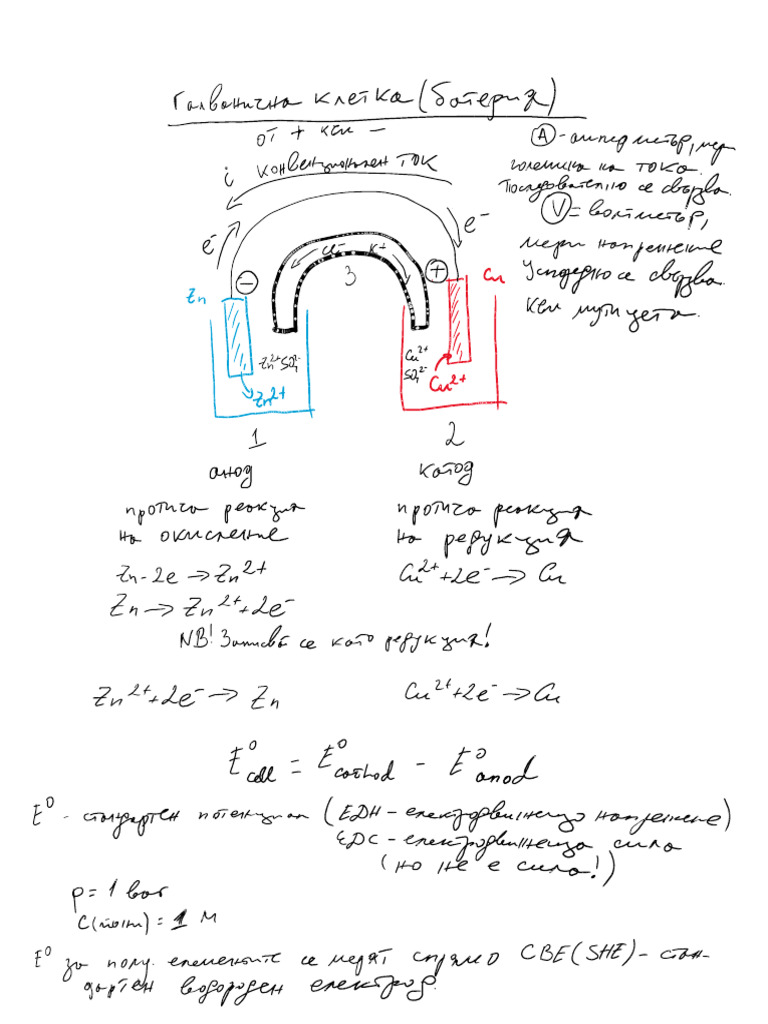 Галванична клетка (батерия)
от + към –
i конвенционален ток
A - амперметър, мери
големина на тока.
Последователно се свързва.
V = волтметър,
мери напрежение
Успоредно се свързва
към
e⁻
e⁻
Cl⁻ K⁺
3
– +
Zn
Cu
Zn²⁺SO₄²⁻
Cu²⁺
SO₄²⁻
Zn²⁺
Cu²⁺
1 2
анод катод
протича реакция протича реакция
на окисление на редукция
Zn-2e → Zn²⁺ Cu²⁺+2e⁻ → Cu
Zn → Zn²⁺+2e⁻
NB! Записва се като редукция!
Zn²⁺+2e⁻ → Zn Cu²⁺+2e⁻ → Cu
E⁰cell = E⁰cathod - E⁰anod
E⁰ - стандартен потенциал (ЕДН - електродвижещо напрежение)
ЕДС - електродвижеща сила
(но не е сила!)
p = 1 bar
C(йони) = 1 M
E⁰ за полуелементите се мерят спрямо СВЕ (SHE) - стан-
дартен водороден електрод.